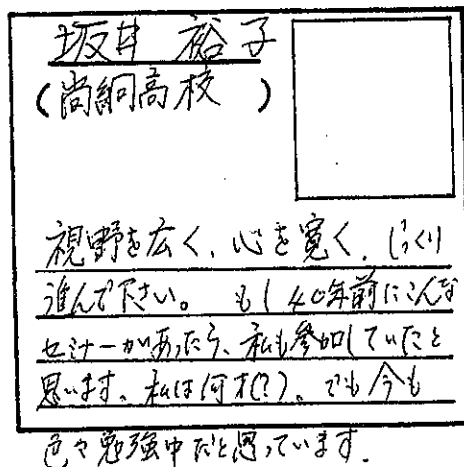 坂井 裕子
(尚絅高校)
視野を広く、心を寛く、じっくり
進んで下さい。もし40年前にこんな
セミナーがあったら、私も参加していたと
思います。私は何才(?)。でも今も
色々勉強中だと思っています.